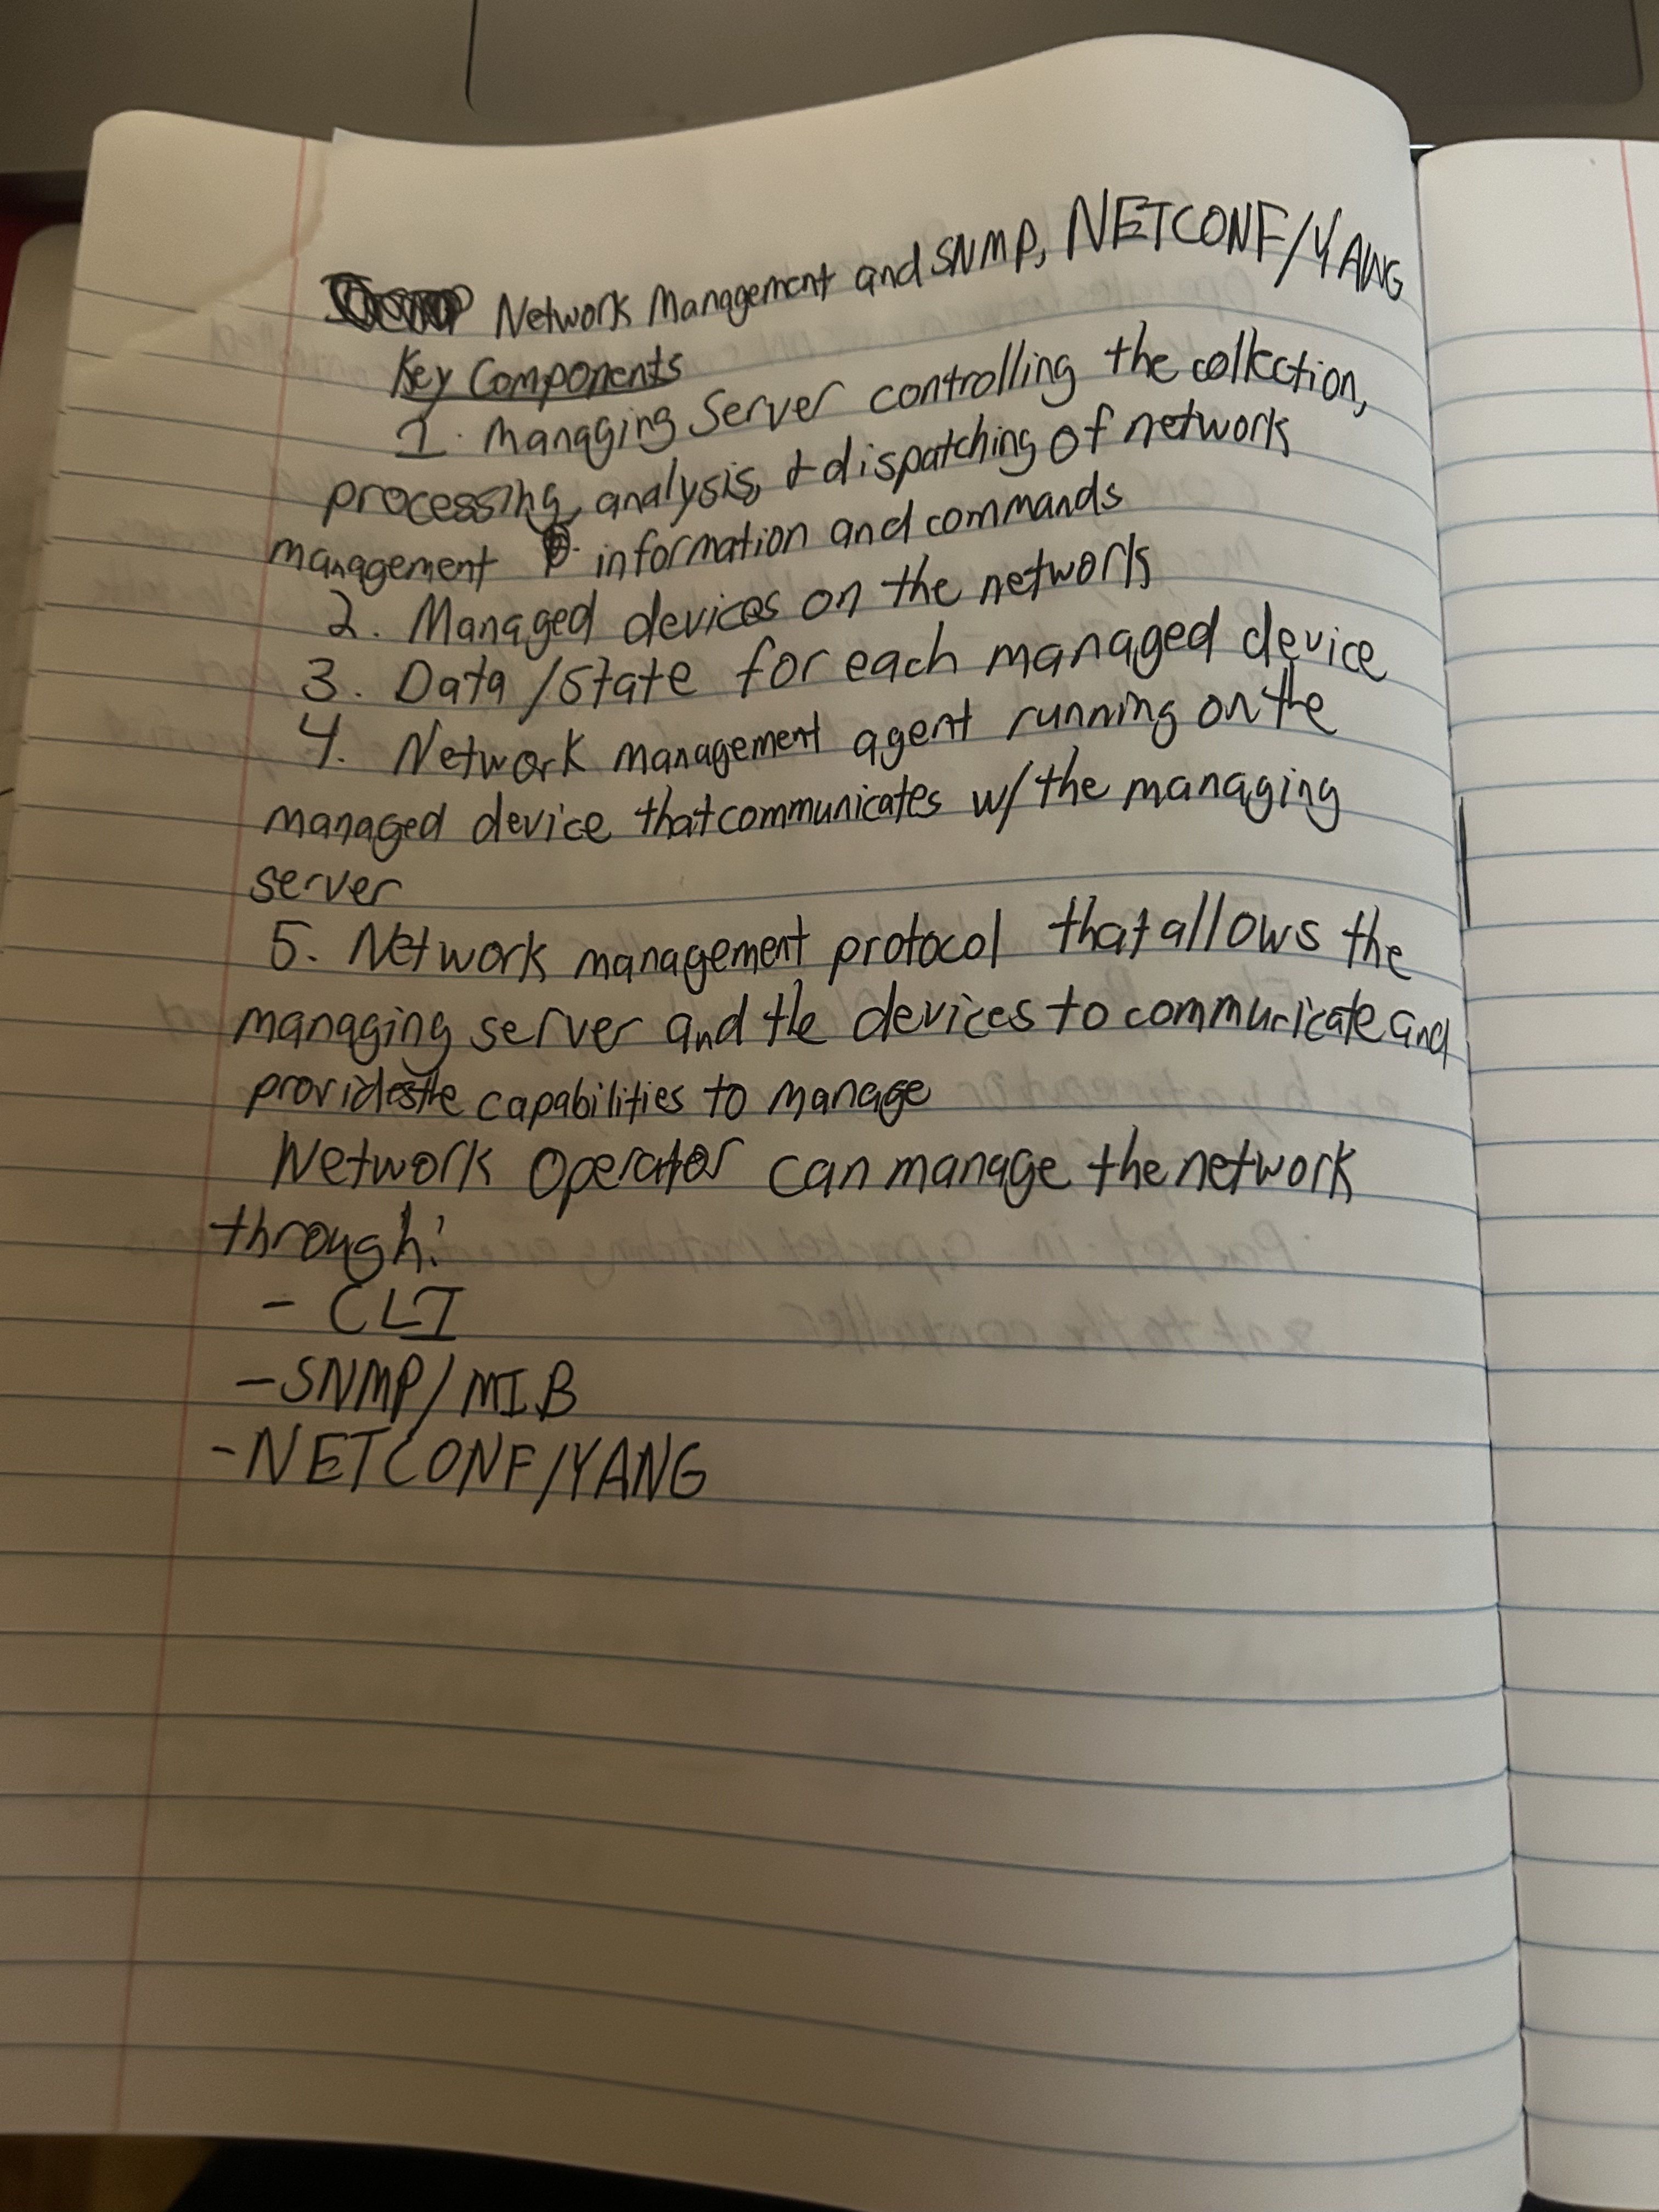 Network Management and SNMP, NETCONF/YANG
Key Components
1. Managing Server controlling the collection,
processing, analysis, + dispatching of network
management information and commands
2. Managed devices on the network
3. Data /State for each managed device
4. Network management agent running on the
managed device that communicates w/ the managing
server
5. Network management protocol that allows the
managing server and the devices to communicate and
provides the capabilities to manage
Network Operator can manage the network
through:
- CLI
- SNMP/MIB
- NETCONF/YANG